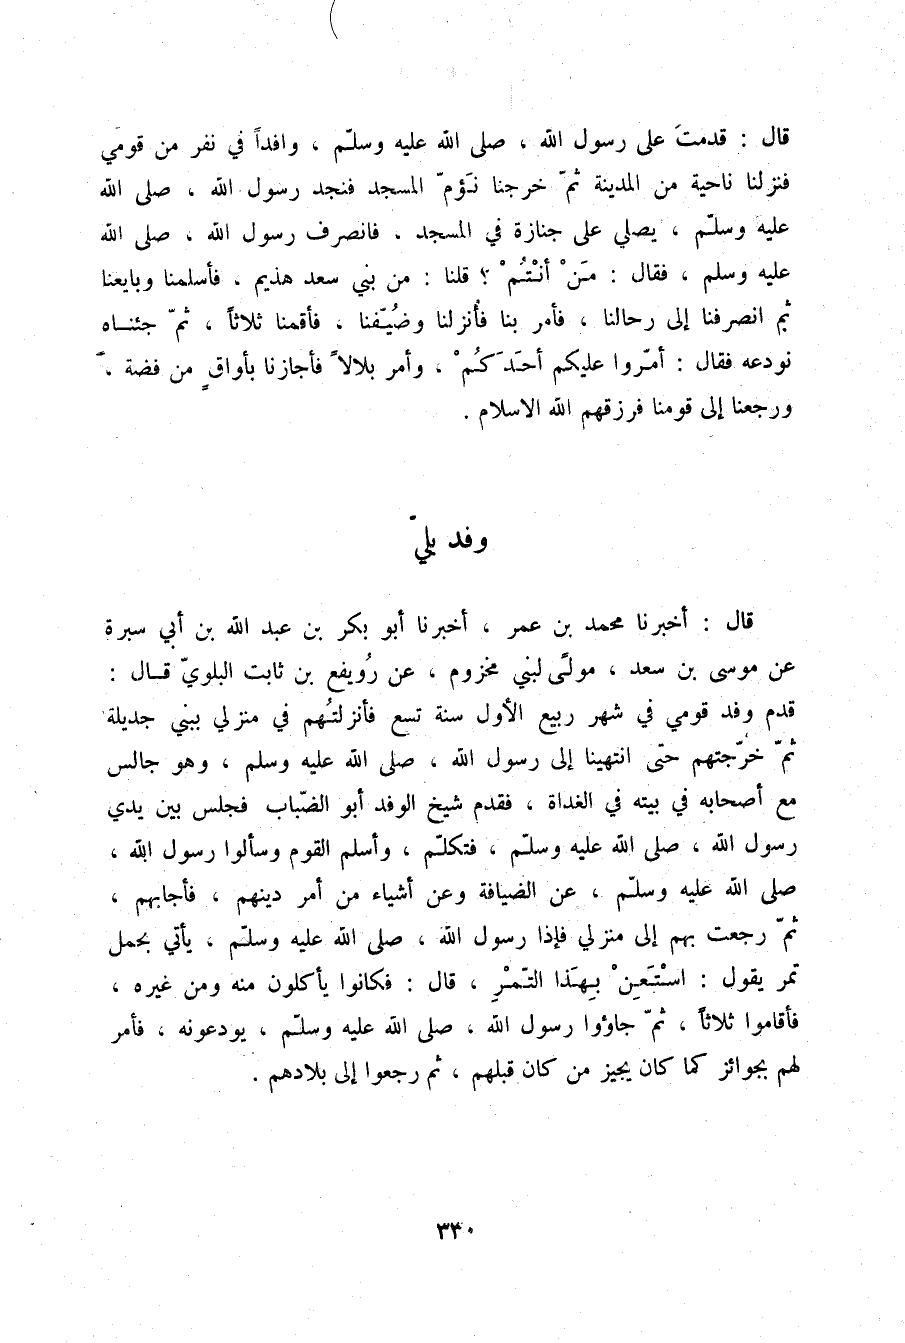 قال : قدمتَ على رسول الله ، صلى الله عليه وسلّم ، وافداً في نفر من قومي
فنزلنا ناحية من المدينة ثمّ خرجنا نَؤمّ المسجد فنجد رسول الله ، صلى الله
عليه وسلّم ، يصلي على جنازة في المسجد . فانصرف رسول الله ، صلى الله
عليه وسلم ، فقال : مَنْ أنْتُمْ ؟ قلنا : من بني سعد هذيم ، فأسلمنا وبايعنا
ثم انصرفنا إلى رحالنا ، فأمر بنا فأُنزلنا وضُيّفنا ، فأقمنا ثلاثاً ، ثمّ جئناه
نودعه فقال : أمّروا عليكم أحَدَكُمْ ، وأمر بلالاً فأجازنا بأواقٍ من فضة .
ورجعنا إلى قومنا فرزقهم الله الاسلام .
وفد بليّ
قال : أخبرنا محمد بن عمر ، أخبرنا أبو بكر بن عبد الله بن أبي سبرة
عن موسى بن سعد ، مولًى لبني مخزوم ، عن رُويفع بن ثابت البلويّ قال :
قدم وفد قومي في شهر ربيع الأول سنة تسع فأنزلتُهم في منزلي ببني جديلة
ثمّ خرّجتهم حتّى انتهينا إلى رسول الله ، صلى الله عليه وسلم ، وهو جالس
مع أصحابه في بيته في الغداة ، فقدم شيخ الوفد أبو الضّباب فجلس بين يدي
رسول الله ، صلى الله عليه وسلّم ، فتكلّم ، وأسلم القوم وسألوا رسول الله ،
صلى الله عليه وسلّم ، عن الضيافة وعن أشياء من أمر دينهم ، فأجابهم ،
ثمّ رجعت بهم إلى منزلي فإذا رسول الله ، صلى الله عليه وسلّم ، يأتي بحمل
تمر يقول : اسْتَعِنْ بِهَذا التّمْرِ ، قال : فكانوا يأكلون منه ومن غيره ،
فأقاموا ثلاثاً ، ثمّ جاؤوا رسول الله ، صلى الله عليه وسلّم ، يودعونه ، فأمر
لهم بجوائز كما كان يجيز من كان قبلهم ، ثم رجعوا إلى بلادهم .
٣٣٠